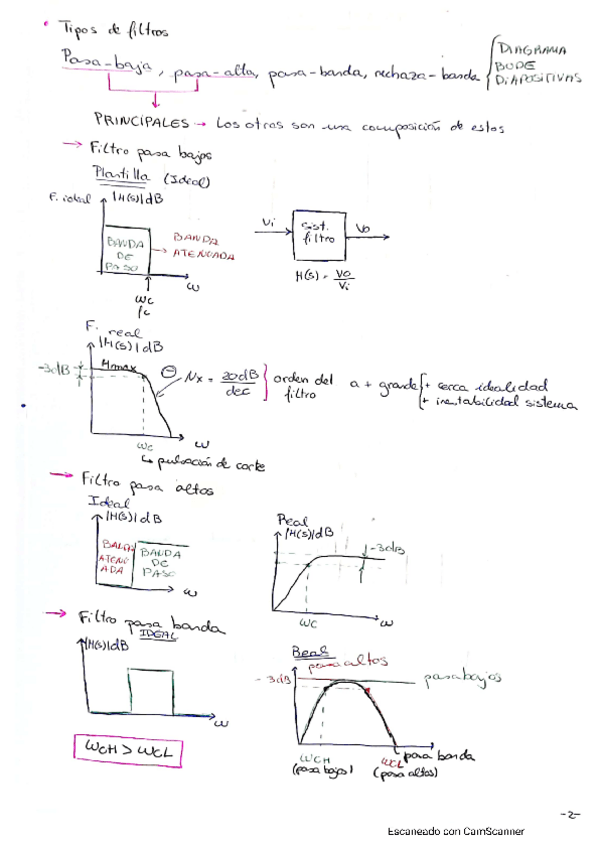 • Tipos de filtros
Pasa-baja, pasa-alta, pasa-banda, rechaza-banda { DIAGRAMA
BODE
DIAPOSITIVAS
PRINCIPALES → Los otros son una composición de estos
→ Filtro pasa bajos
Plantilla (Ideal)
F. ideal |H(s)|dB
BANDA DE PASO
BANDA ATENUADA
ω
ωc
fc
Vi
Sist. filtro
Vo
H(s) = Vo/Vi
F. real
|H(s)|dB
-3dB
Hmax
⊖ Nx = 20dB/dec } orden del filtro
a + grande { + cerca idealidad
+ inestabilidad sistema
ωc
ω
↳ pulsación de corte
→ Filtro pasa altos
Ideal
|H(s)|dB
BANDA
BANDA DE PASO
ω
Real
|H(s)|dB
-3dB
ωc
ω
→ Filtro pasa banda
IDEAL
|H(s)|dB
ω
ωCH > ωCL
Real
pasa altos
-3dB
pasabajos
pasa banda
ωCH
(pasa bajos)
ωCL
(pasa altos)
-2-
Escaneado con CamScanner